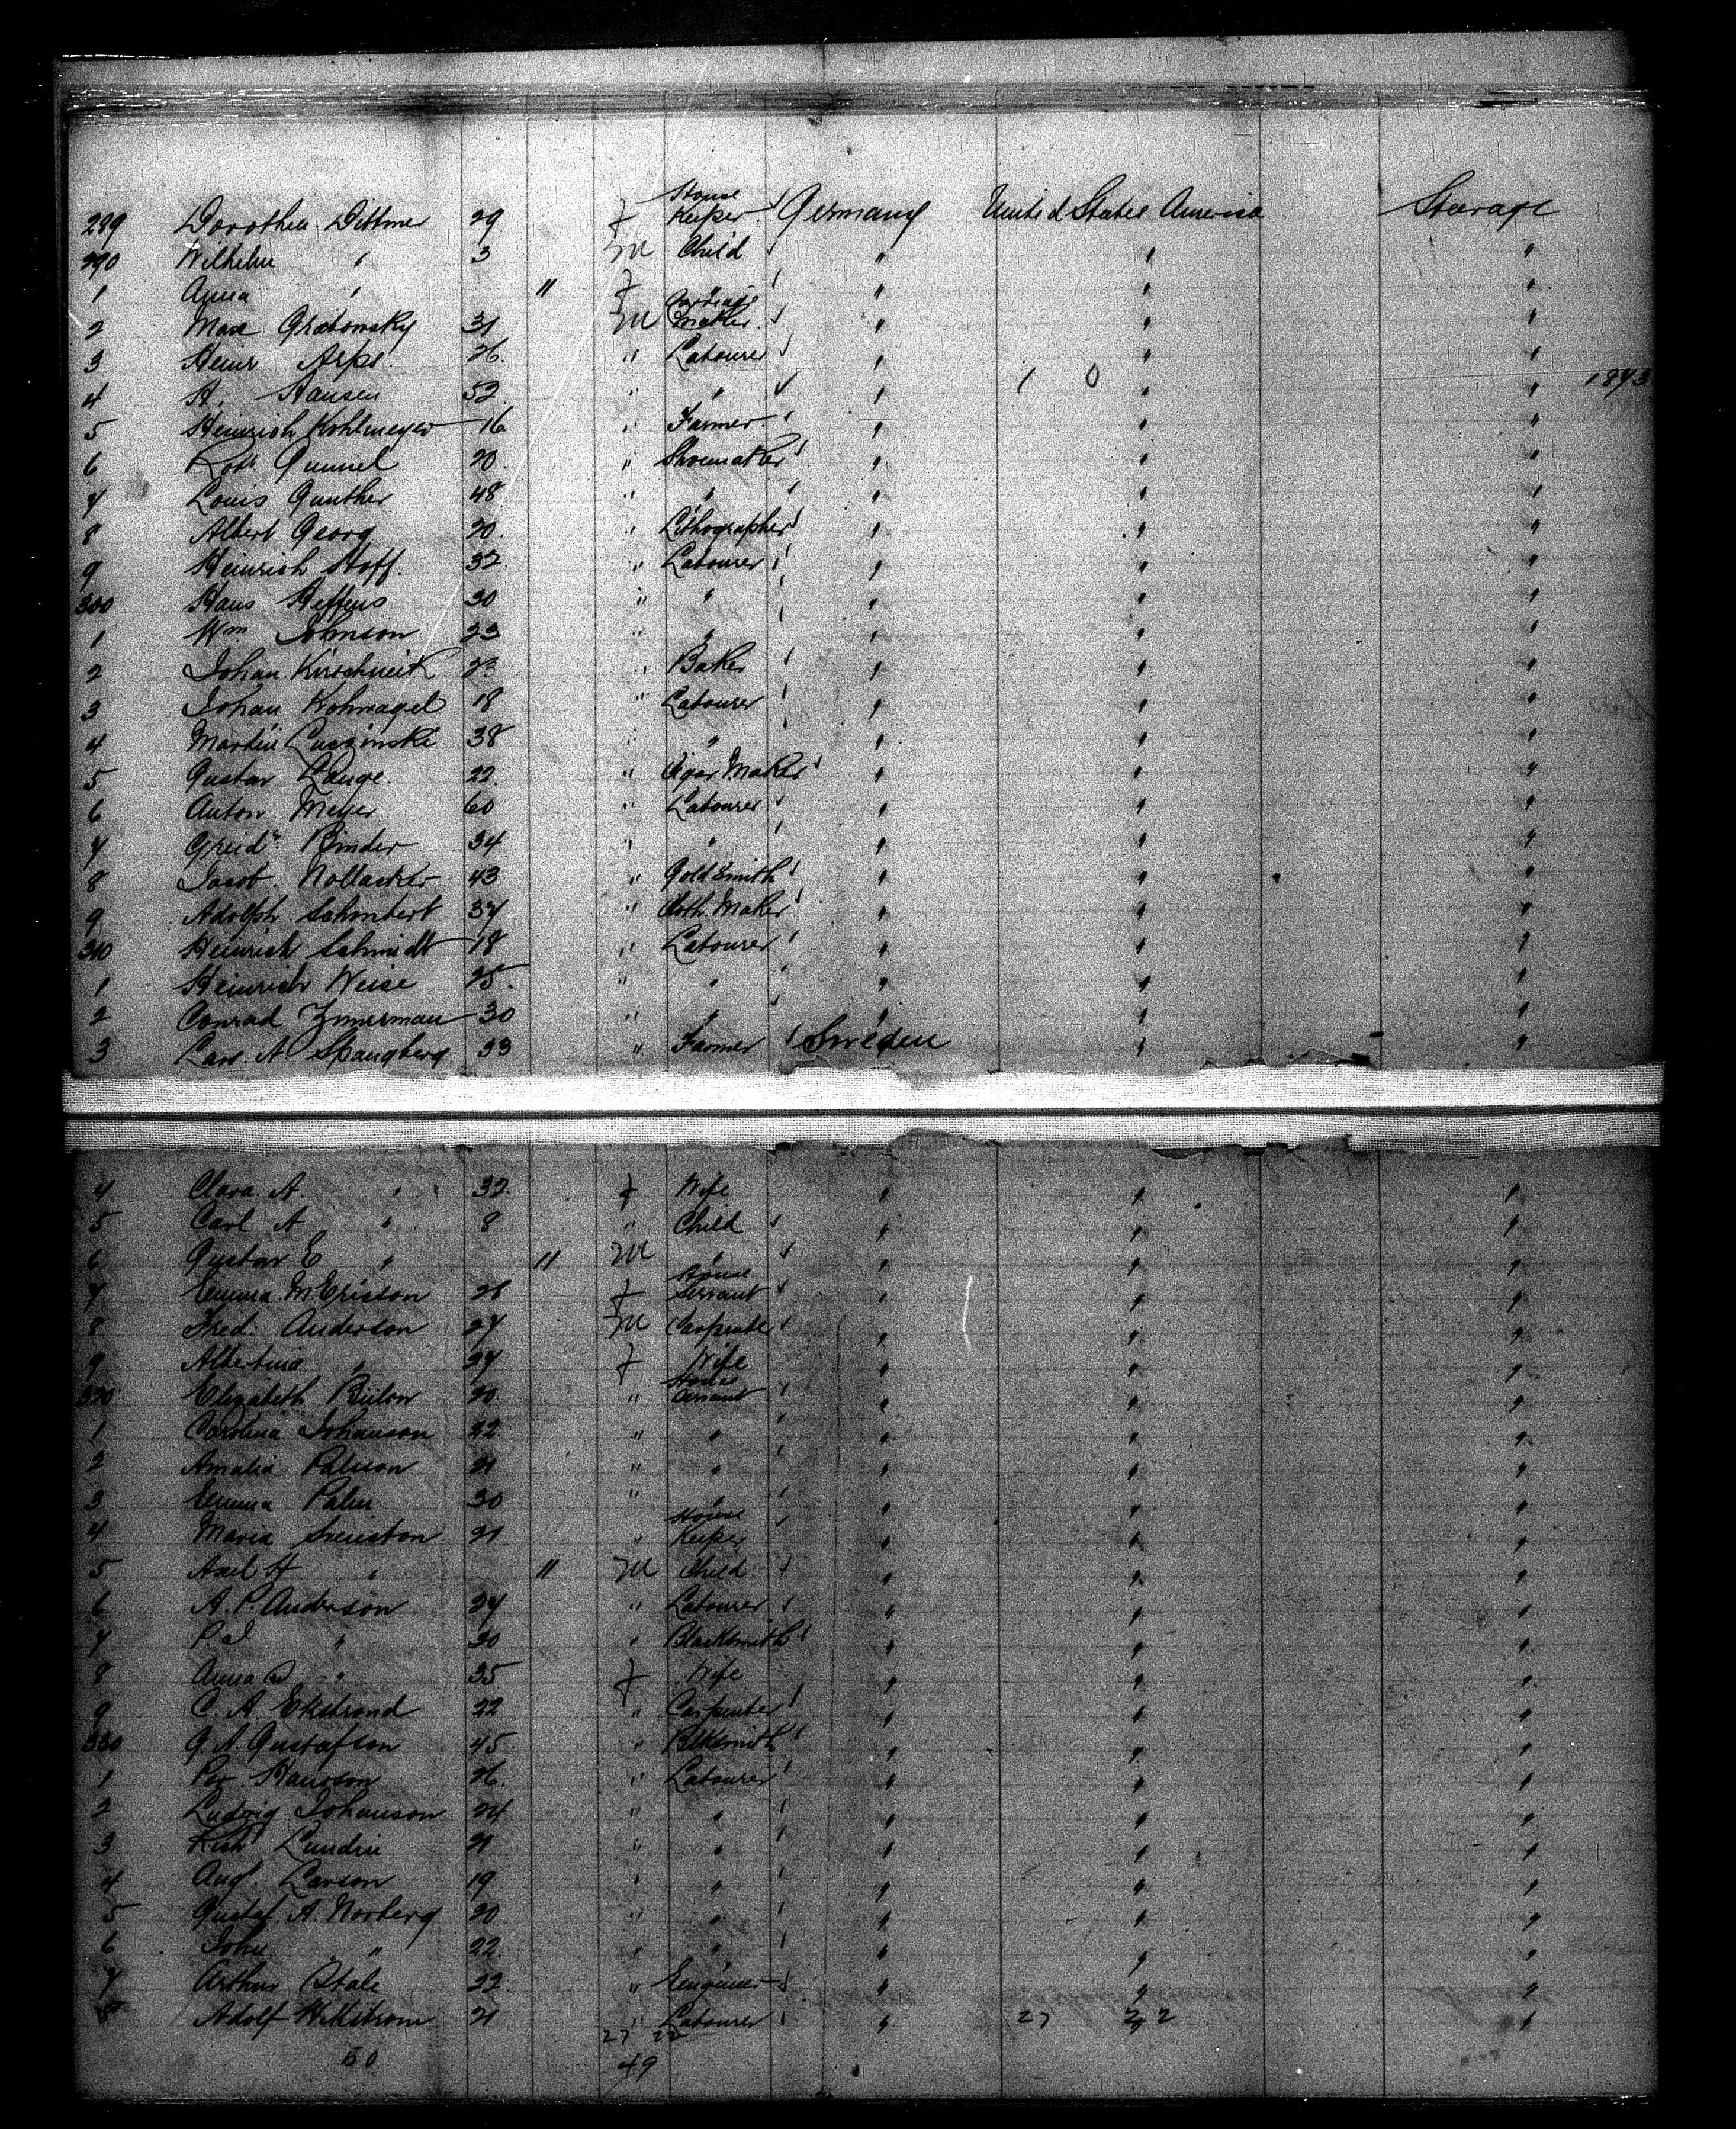 289 Dorothea Dittmer 29 f House Keeper Germany United States America Steerage
290 Wilhelm " 3 M Child " " "
1 Anna " 11 f " " " "
2 Max Grabowsky 31 M Carriage Maker " " "
3 Heinr Arps 26 " Labourer " " "
4 H. Hansen 52 " " " 1 0 " " 1893
5 Heinrich Kohlmeyer 16 " Farmer " " "
6 Robt 20 " Shoemaker " " "
7 Louis Gunther 48 " " " " "
8 Albert Georg 20 " Lithographer " " "
9 Heinrich Hoff 32 " Labourer " " "
300 Hans Steffens 30 " " " " "
1 Wm Johnson 23 " " " " "
2 Johan Kirschneit 23 " Baker " " "
3 Johan Kohnagel 18 " Labourer " " "
4 Martin Luszinski 38 " " " " "
5 Gustav Lange 22 " Cigar Maker " " "
6 Anton Meyer 60 " Labourer " " "
7 Binder 34 " " " " "
8 Jacob 43 " Gold Smith " " "
9 Adolph Schubert 37 " Cloth Maker " " "
310 Heinrich Schmidt 18 " Labourer " " "
1 Heinrich Weise 25 " " " " "
2 Conrad Zimerman 30 " " " " "
3 Lars A Spangberg 33 " Farmer Sweden " "
4 Clara A " 32 f Wife " " "
5 Carl A " 8 " Child " " "
6 Gustav E " 11 M " " " "
7 Emma M Ericson 26 f House Servant " " "
8 Fred. Anderson 27 M Carpenter " " "
9 Albertina " 27 f Wife " " "
320 Elizabeth Bülow 20 " House Servant " " "
1 Carolina Johanson 22 " " " " "
2 Amalia Palson 21 " " " " "
3 Emma Palm 30 " " " " "
4 Maria Swenston 21 " House Keeper " " "
5 Axel H " 11 M Child " " "
6 A. P. Anderson 27 " Labourer " " "
7 P. J " 30 " Blacksmith " " "
8 Anna B " 35 f Wife " " "
9 C. A. Ekstrand 22 " Carpenter " " "
330 G. A. Gustafson 45 " Blksmith " " "
1 Per Hanson 26 " Labourer " " "
2 Ludvig Johanson 24 " " " " "
3 Lundin 21 " " " " "
4 Augt. Larson 19 " " " " "
5 Gustaf. A. Norberg 20 " " " " "
6 John " 22 " " " " "
7 Arthur Stale 22 " Engineer " " "
8 Adolf Wikstrom 21 " Labourer " 27 22 " "
27 22
50 49